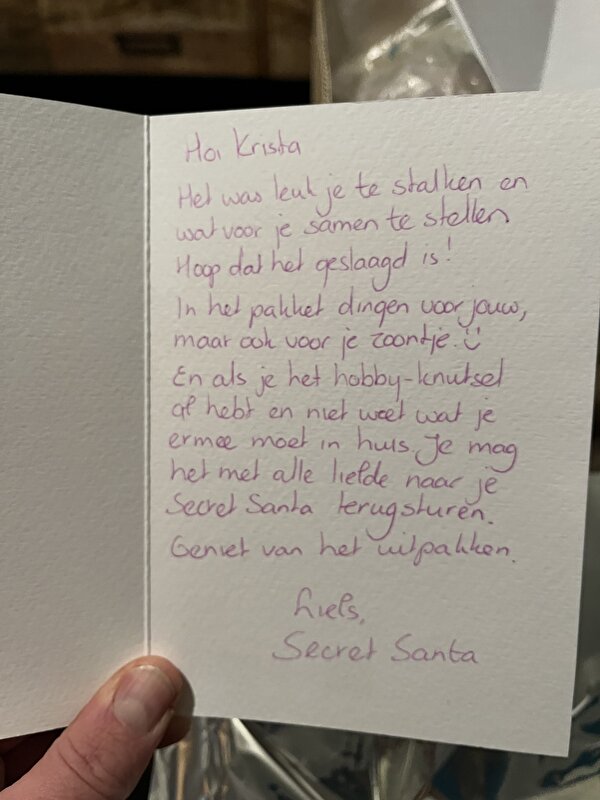 Hoi Krista
Het was leuk je te stalken en
wat voor je samen te stellen
Hoop dat het geslaagd is!
In het pakket dingen voor jouw,
maar ook voor je zoontje. :)
En als je het hobby-knutsel
af hebt en niet weet wat je
ermee moet in huis. Je mag
het met alle liefde naar je
Secret Santa terugsturen.
Geniet van het uitpakken.
Liefs,
Secret Santa